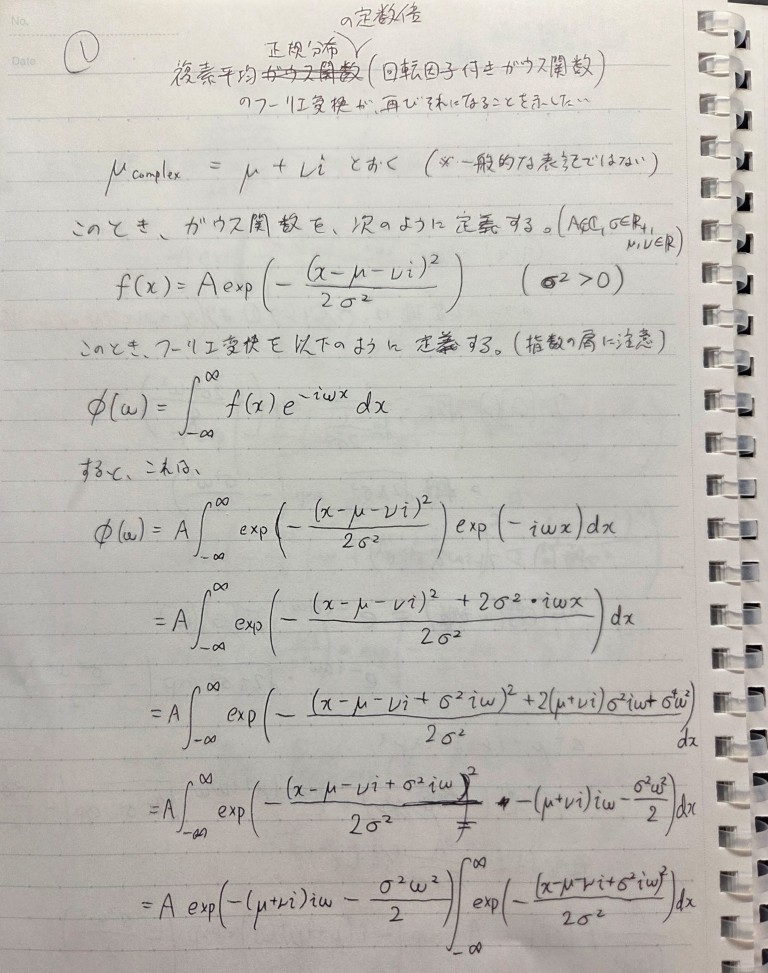 No.
Date
①
の定数倍
正規分布
複素平均ガウス関数(回転因子付きガウス関数)
のフーリエ変換が、再びそれになることを示したい
μcomplex = μ + νi とおく (※一般的な表記ではない)
このとき、ガウス関数を、次のように定義する。(A∈ℂ, σ∈ℝ+,
μ,ν∈ℝ)
f(x) = A exp(- (x-μ-νi)² / 2σ²) (σ²>0)
このとき、フーリエ変換を以下のように定義する。(指数の肩に注意)
φ(ω) = ∫_{-∞}^{∞} f(x) e^{-iωx} dx
すると、これは、
φ(ω) = A ∫_{-∞}^{∞} exp(- (x-μ-νi)² / 2σ²) exp(-iωx) dx
= A ∫_{-∞}^{∞} exp(- (x-μ-νi)² + 2σ²・iωx / 2σ²) dx
= A ∫_{-∞}^{∞} exp(- (x-μ-νi+σ²iω)² + 2(μ+νi)σ²iω + σ⁴ω² / 2σ²) dx
= A ∫_{-∞}^{∞} exp(- (x-μ-νi+σ²iω)² / 2σ² -(μ+νi)iω - σ²ω²/2) dx
= A exp(-(μ+νi)iω - σ²ω²/2) ∫_{-∞}^{∞} exp(- (x-μ-νi+σ²iω)² / 2σ²) dx